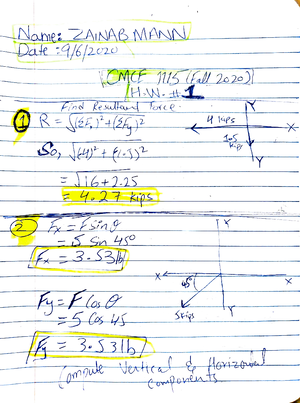 Name: ZAINAB MANN
Date: 9/6/2020
CMCE 1115 (Fall 2020)
H.W. #1
Find Resultant Force.
① R = √(ΣFx)²+(ΣFy)²
So, √(-4)² + (-1.5)²
= √16+2.25
= 4.27 kips
Y
4 kips
X
1.5 kips
Y
② Fx = F sinθ
= 5 sin 45°
Fx = 3.53lb
Fy = F Cos θ
= 5 Cos 45
Fy = 3.53lb
X
X
45°
5kips
Y
Compute Vertical & Horizontal
components